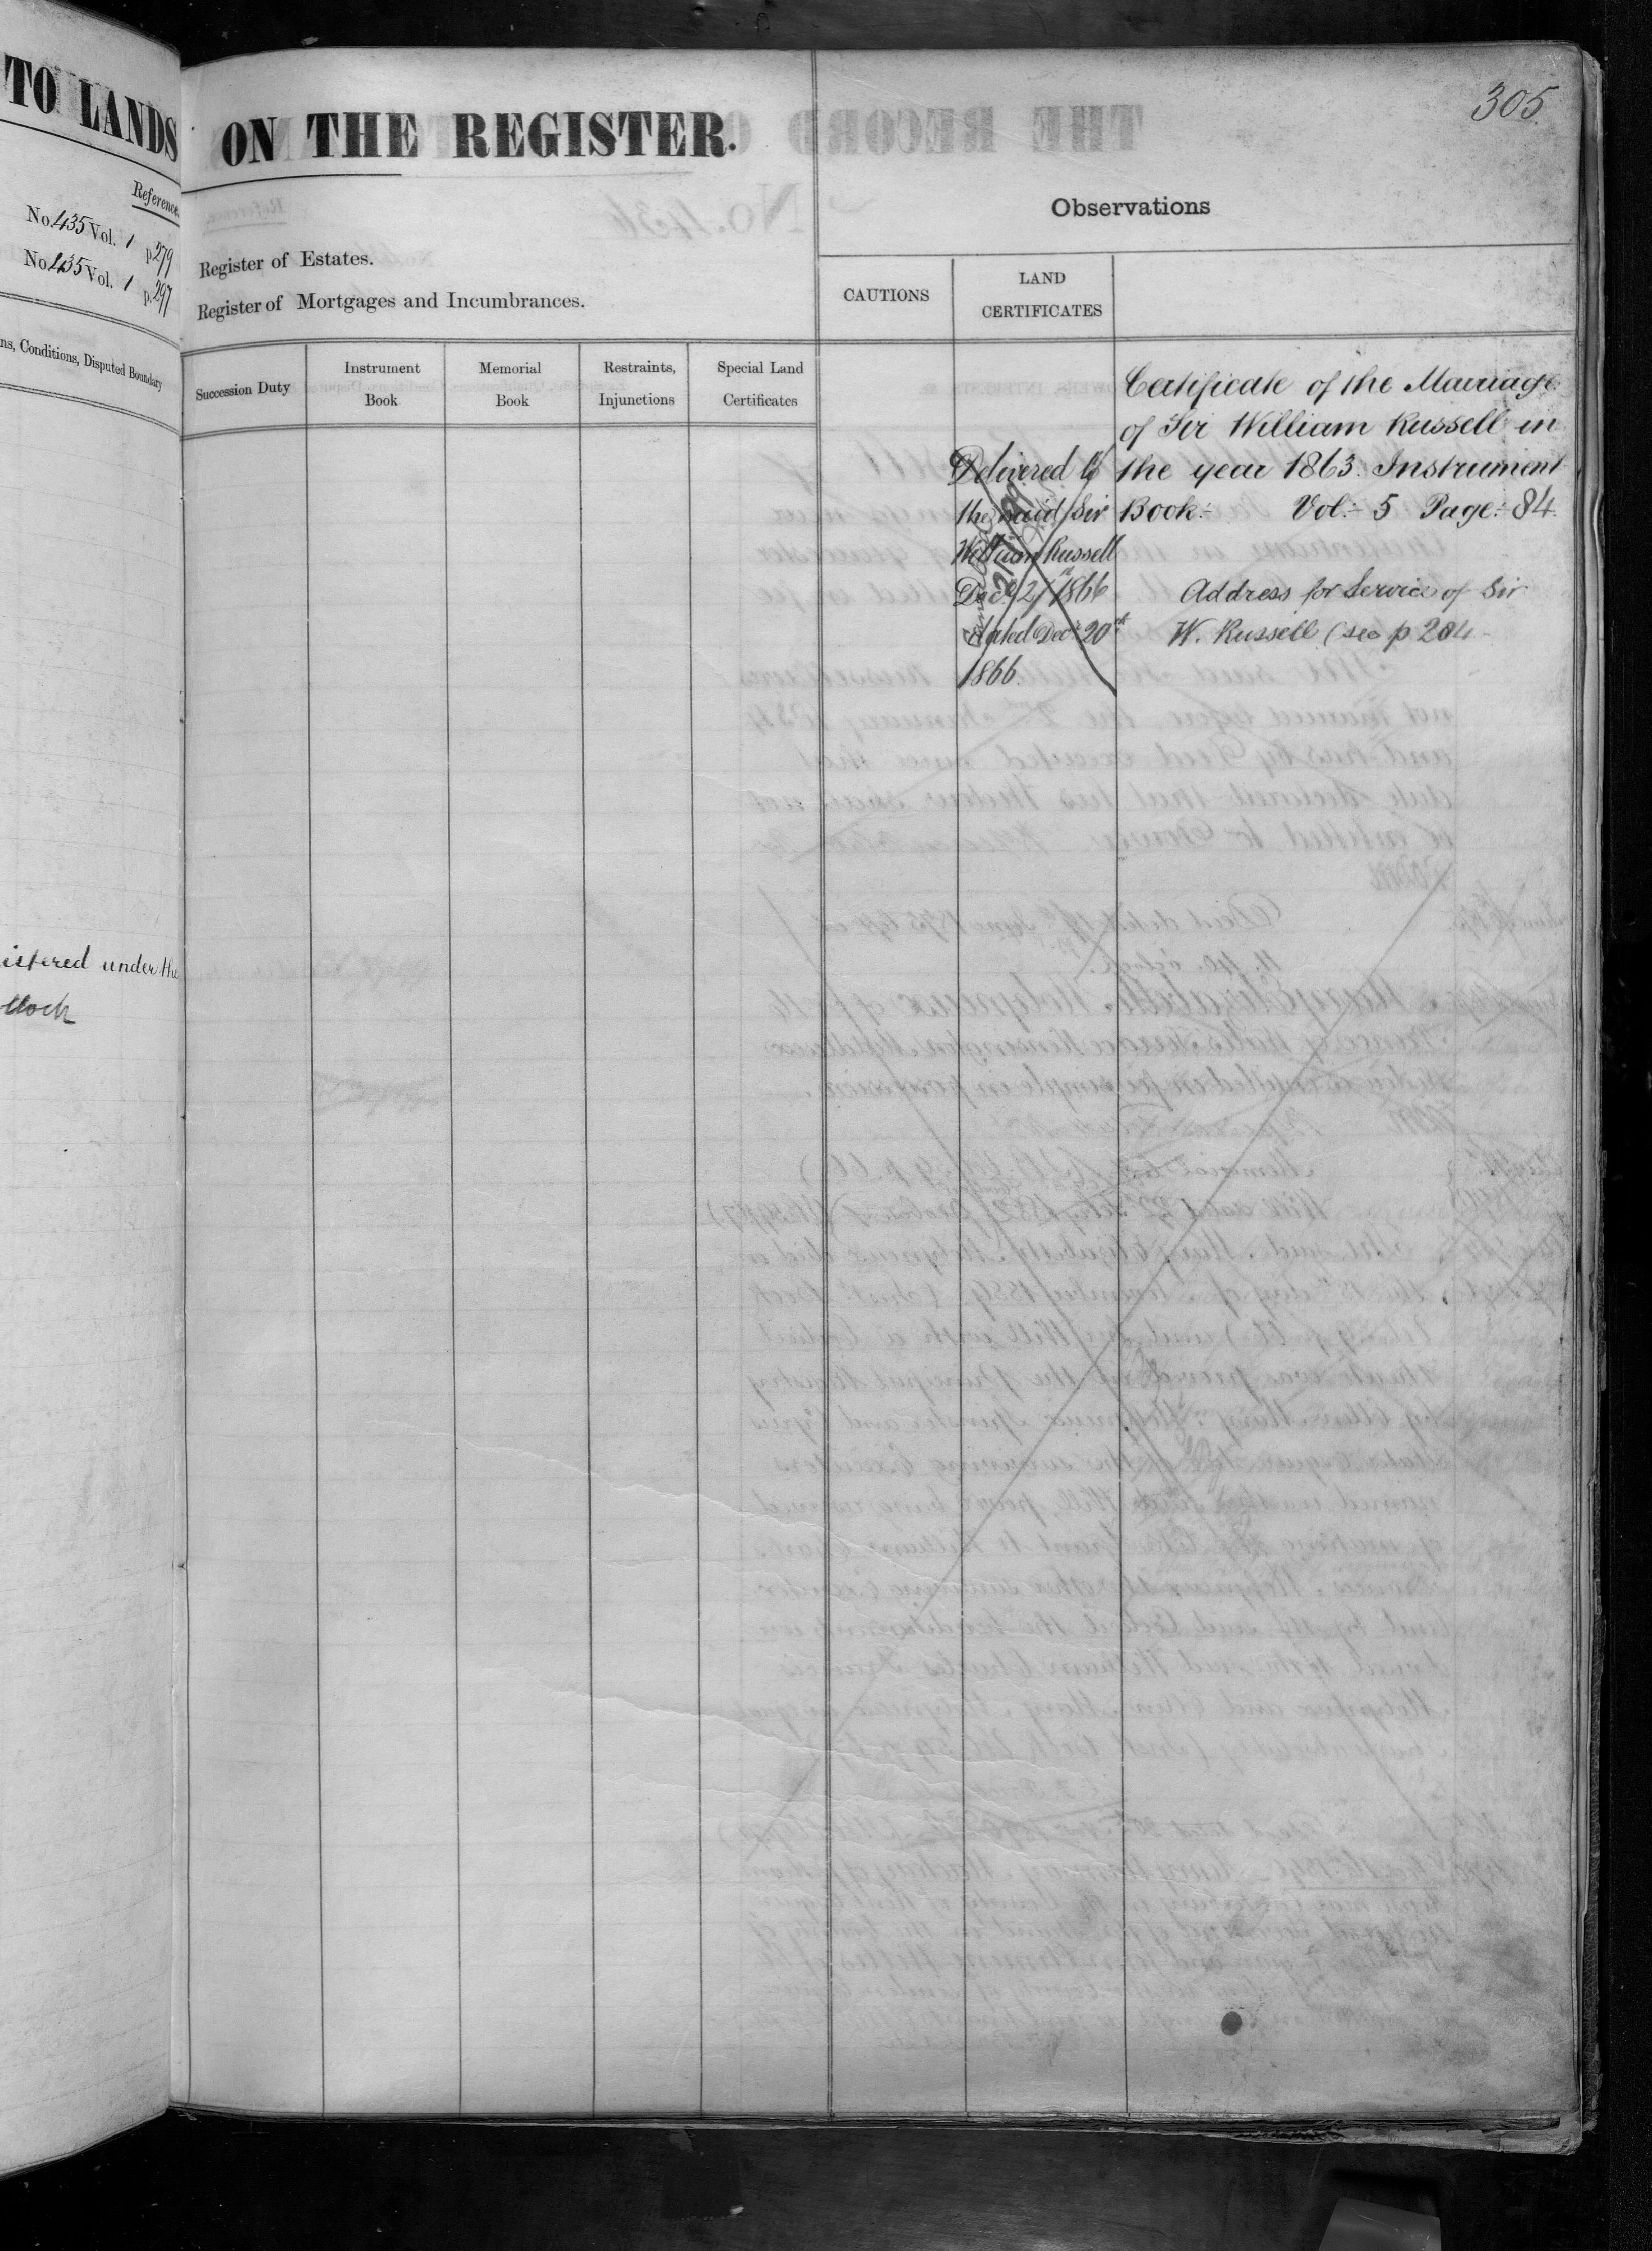 TO LANDS
Reference.
No. 435 Vol. 1 p. 279
No. 435 Vol. 1 p. 297
ns, Conditions, Disputed Boundary
istered under the
305.
ON THE REGISTER.
Register of Estates.
Register of Mortgages and Incumbrances.
Observations
CAUTIONS
LAND
CERTIFICATES
Succession Duty
Instrument
Book
Memorial
Book
Restraints,
Injunctions
Special Land
Certificates
Delivered to
the said Sir
William Russell
Decr 21st 1866
dated Decr 20th
1866.
Certificate of the Marriage
of Sir William Russell in
the year 1863. Instrument
Book:- Vol:- 5 Page:- 84.
Address for Service of Sir
W. Russell (see p 204